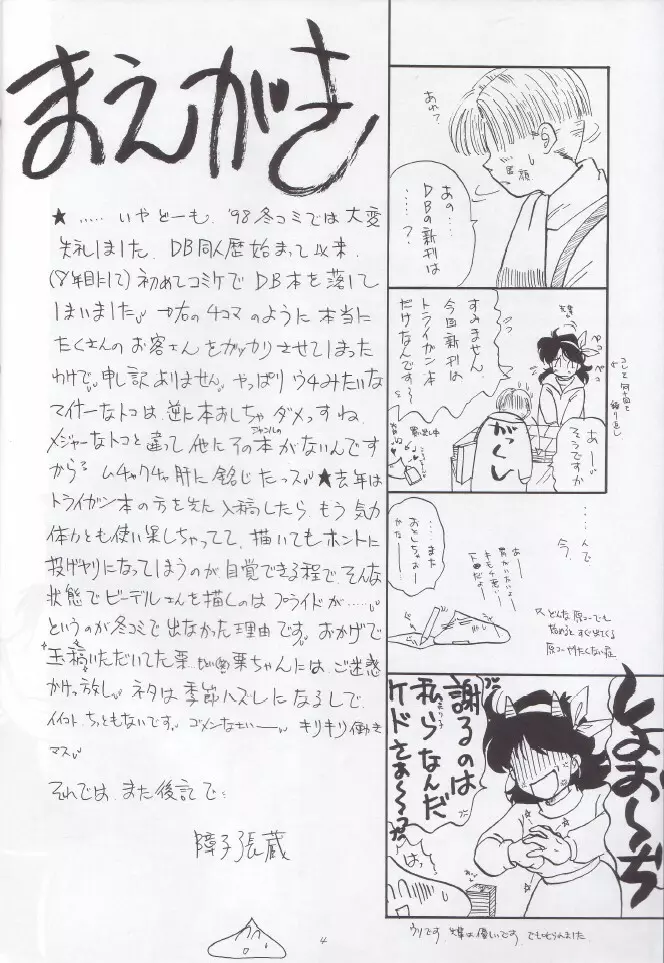 まえがき
★ ‥‥‥ いやどーも、'98冬コミでは大変
失礼しました。DB同人歴始まって以来、
(8年目にして)初めてコミケでDB本を落して
しまいました。右の4コマのように本当に
たくさんのお客さんをガッカリさせてしまった
わけで、申し訳ありません。やっぱりウチみたいな
マイナーなトコは、逆に本おしちゃダメっすね。
メジャーなトコと違って他にそのジャンルの本がないんです
から。ムチャクチャ肝に銘じたっス。★去年は
トライガン本の方を先に入稿したら、もう気力
体力とも使い果しちゃってて、描いてもホントに
投げヤリになってしまうのが自覚できる程で、そんな
状態でビーデルさんを描くのはプライドが‥‥‥
というのが冬コミで出なかった理由です。おかげで
玉稿いただいてた栗 栗ちゃんには、ご迷惑
かけっ放し。ネタは季節ハズレになるしで、
イイコトちっともないです。ゴメンなさいー。キリキリ働き
マス。
それでは、また後記で‥
障子張蔵
4
あれ?
あの‥‥
DBの新刊は
‥‥‥?
すみません、
今回新刊は
トライガン本
だけなんです〜
ペコ
ペコ
あー
そうですか
がっくし
‥‥‥んで
今、
‥‥また
おとしちゃぁ
かな
どんな原コーでも
始めるとすぐ出てくる
原コーやりたくない症
しょお〜ぢ
謝るのは
私らなんだ
ケドさぁ〜〜〜
はっ
ウリです。先輩は優しいです。でも叱られました。